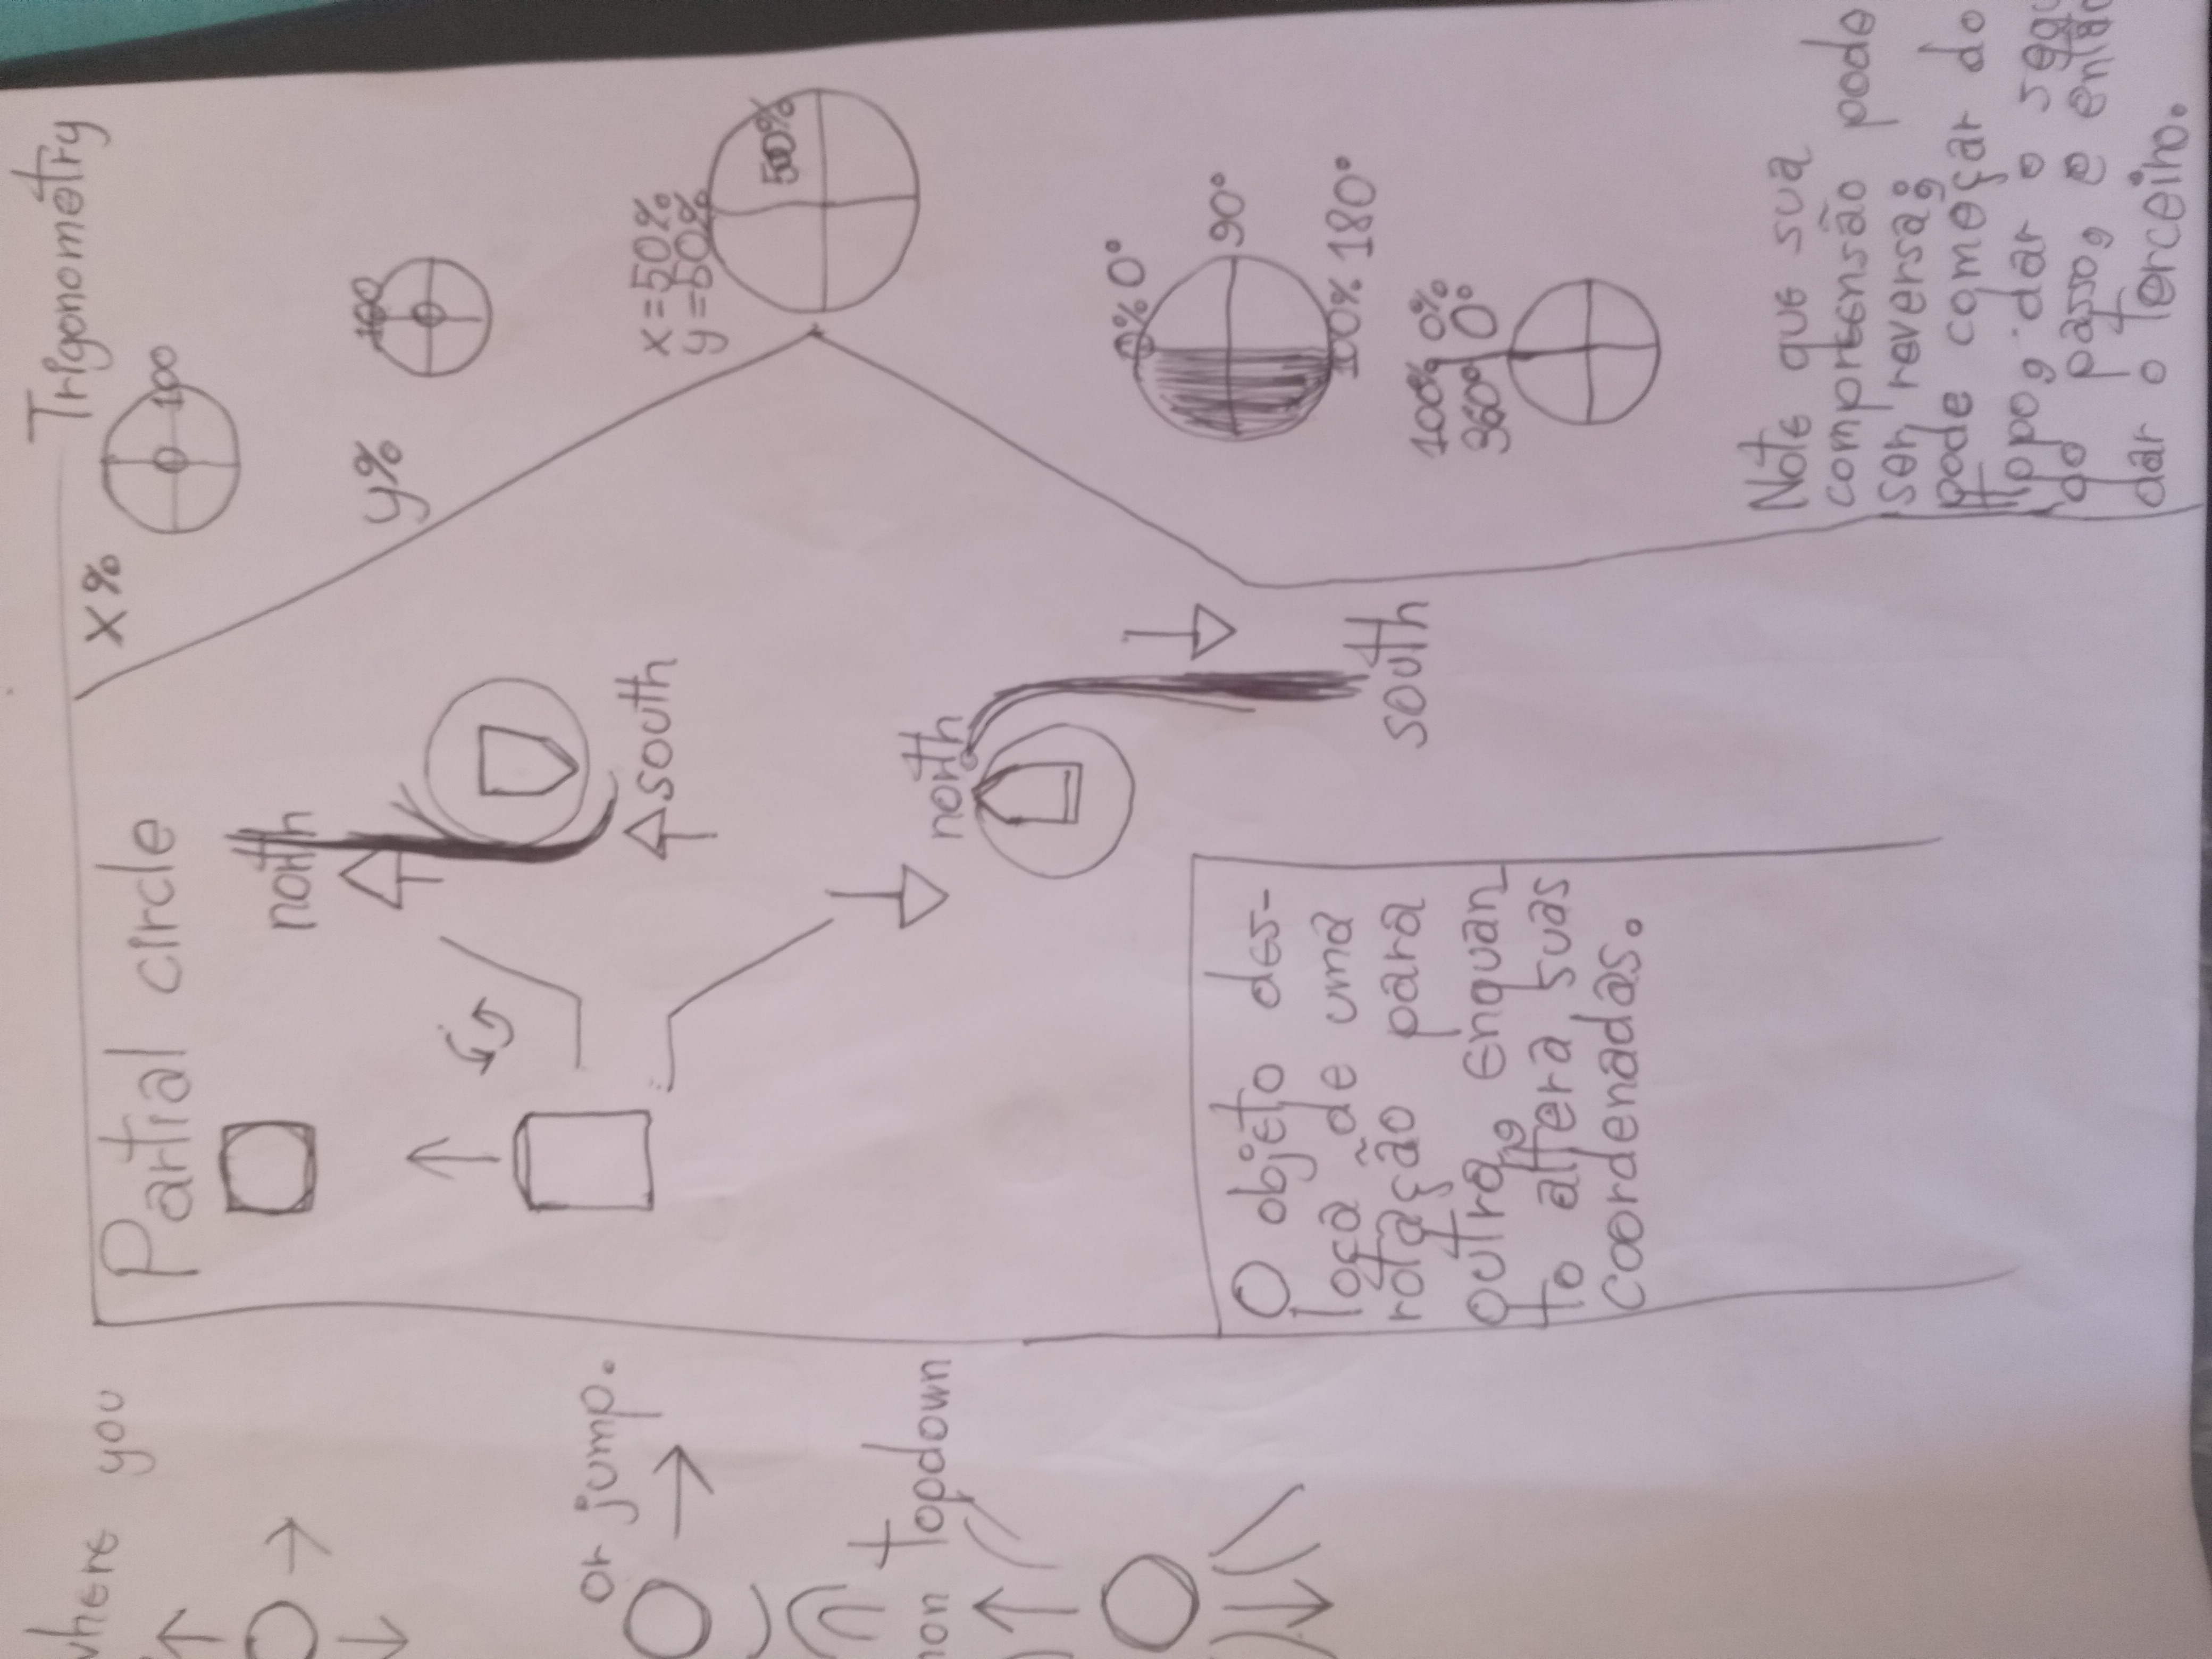 where you
or jump.
topdown
Partial circle
north
south
north
south
O objeto des-
loca de uma
rotação para
outra, enquan
to altera suas
coordenadas.
Trigonometry
x%
100
y%
100
x=50%
y=50%
0% 0°
90°
100% 180°
100% 0%
360° 0°
Note que sua
compreensão pode
ser reversa;
pode começar do
topo, dar o segu
do passo, e então
dar o terceiro.